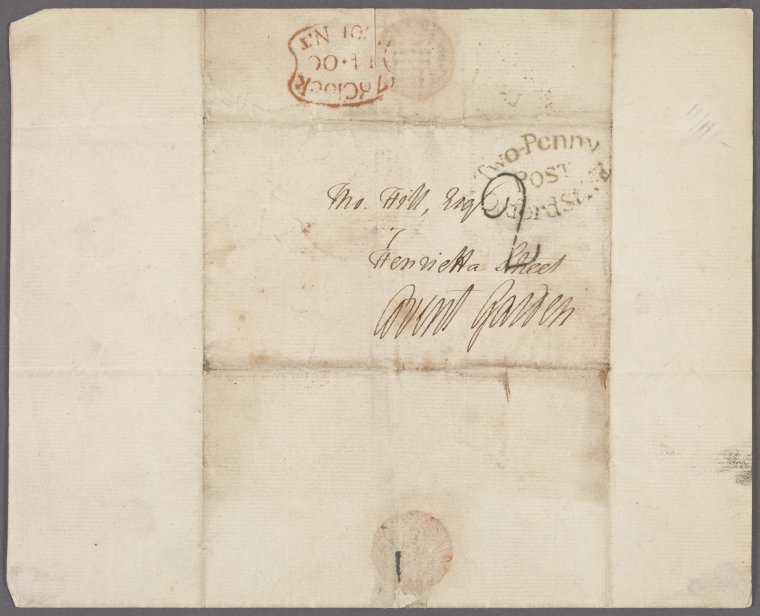 Two-Penny
POST
Tho. Hill, Esqr
7
Henrietta Street
Covent Garden
2
OClock
OC
NT